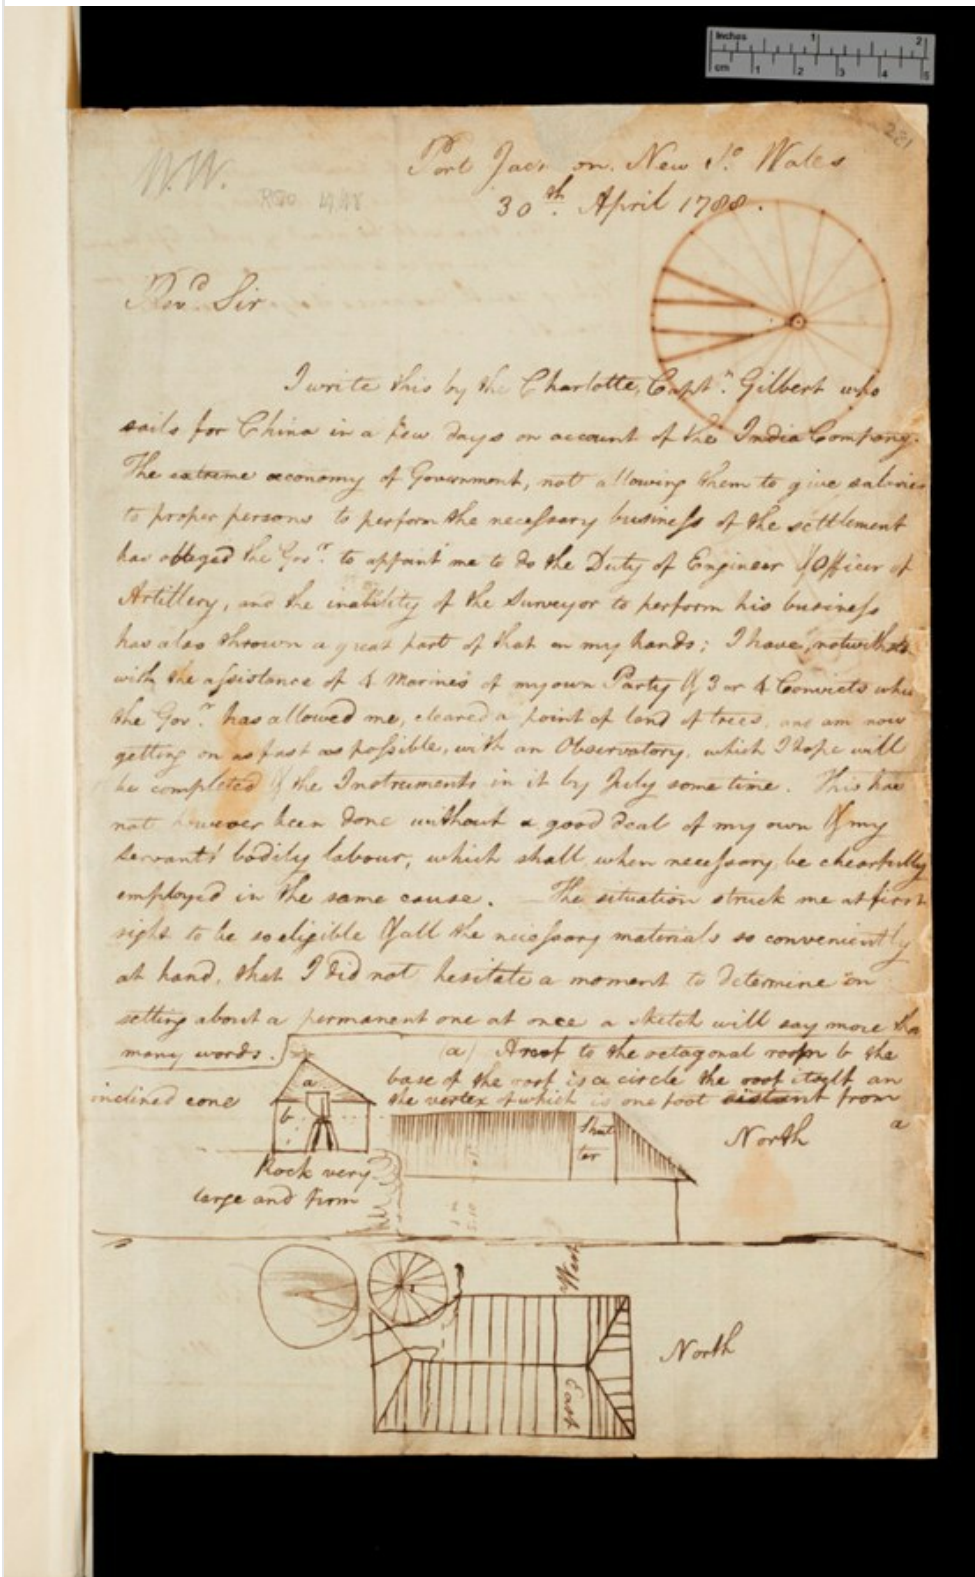 Inches 1 2
cm 1 2 3 4 5
221
W.W.
RGO
Port Jackson. New So. Wales
30th. April 1788.
Revd. Sir
I write this by the Charlotte, Captn. Gilbert who
sails for China in a few days on account of the India Company.
The extreme œconomy of Government, not allowing them to give salaries
to proper persons to perform the necessary business of the settlement
has obliged the Govr. to appoint me to do the Duty of Engineer & Officer of
Artillery, and the inability of the Surveyor to perform his business
has also thrown a great part of that on my hands; I have, notwiths
with the assistance of 4 Marines of my own Party & 3 or 4 Convicts
the Govr. has allowed me, cleared a point of land of trees, and am now
getting on as fast as possible, with an Observatory, which I hope will
be completed & the Instruments in it by July some time. This has
not however been done without a good deal of my own & my
servants' bodily labour, which shall, when necessary, be chearfully
employed in the same cause. The situation struck me at first
sight to be so eligible & all the necessary materials so conveniently
at hand, that I did not hesitate a moment to determine on
setting about a permanent one at once a sketch will say more tha
many words. (a) A roof to the octagonal room b the
base of the roof is a circle the roof itself an
inclined cone the vertex of which is one foot distant from
a
a
b
Shut
ter
North
Rock very
large and firm
West
North
East